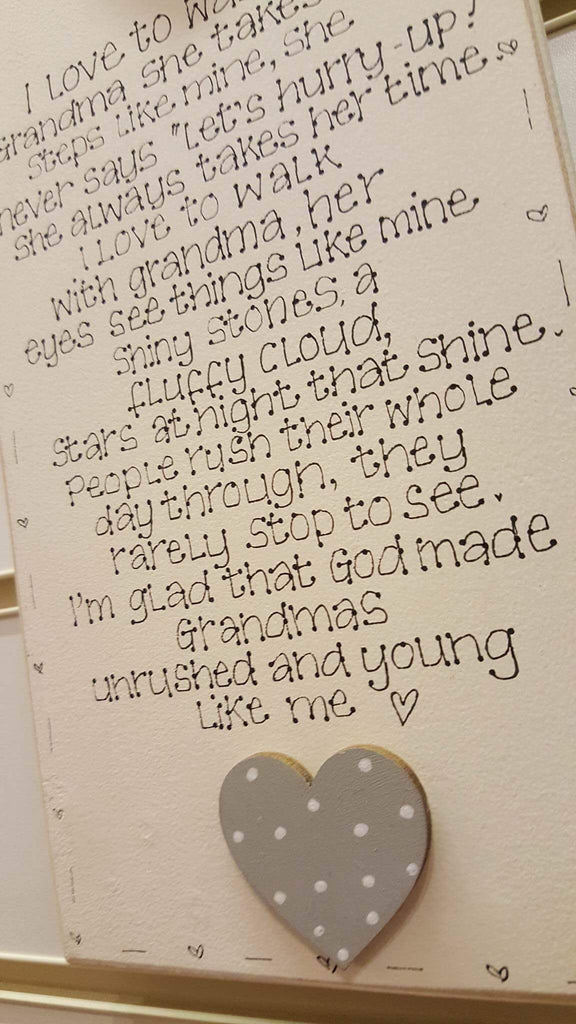 I love to wa
Grandma she takes
steps like mine, she
never says "Let's hurry-up!
she always takes her time.
I love to walk
with grandma, her
eyes see things like mine
shiny stones, a
fluffy cloud,
stars at night that shine.
People rush their whole
day through, they
rarely stop to see.
I'm glad that God made
Grandmas
unrushed and young
like me